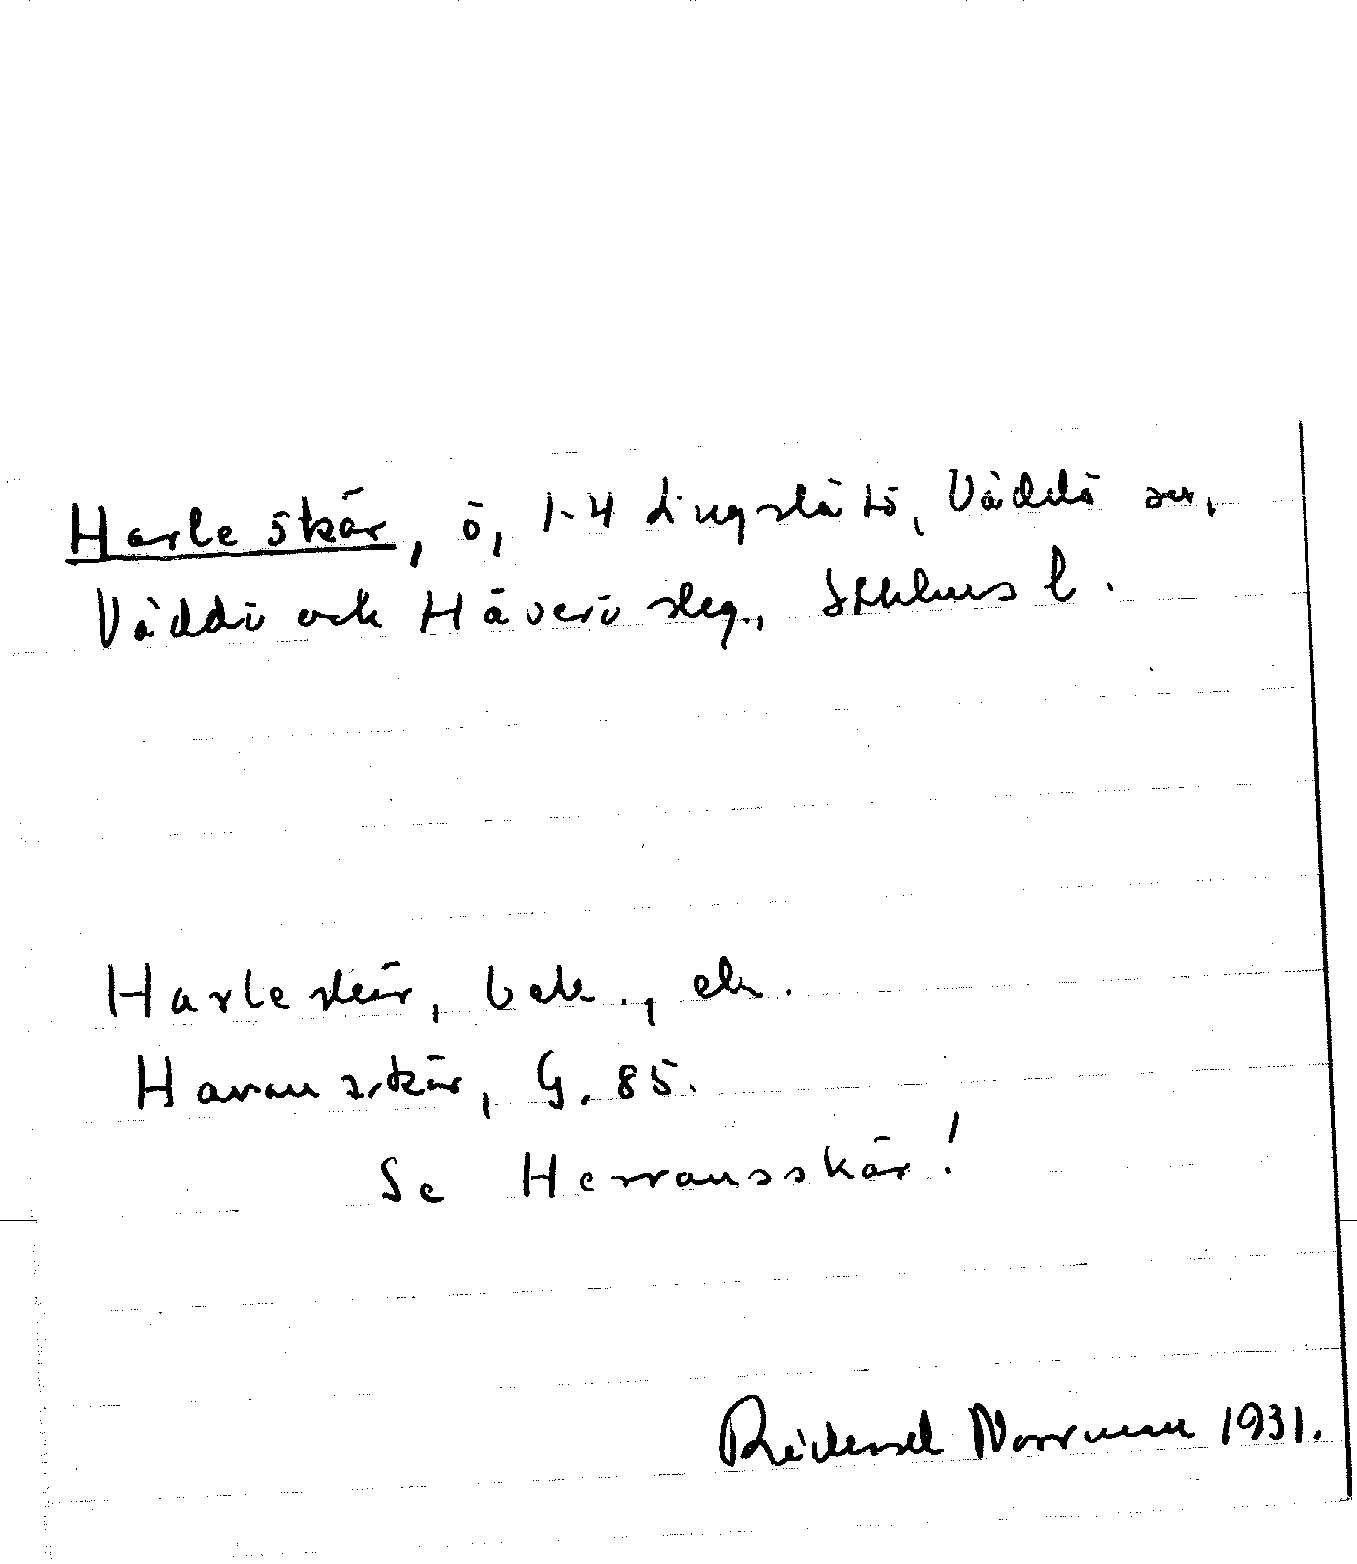 Harleskär, ö, 1-4 Lingslätö, Väddö sn,
Väddö och Häverö slg., Sthlms l.
Harleskär, bok., ek.
Haranskär, G. 85.
Se Herransskär!
Norrman 1931.